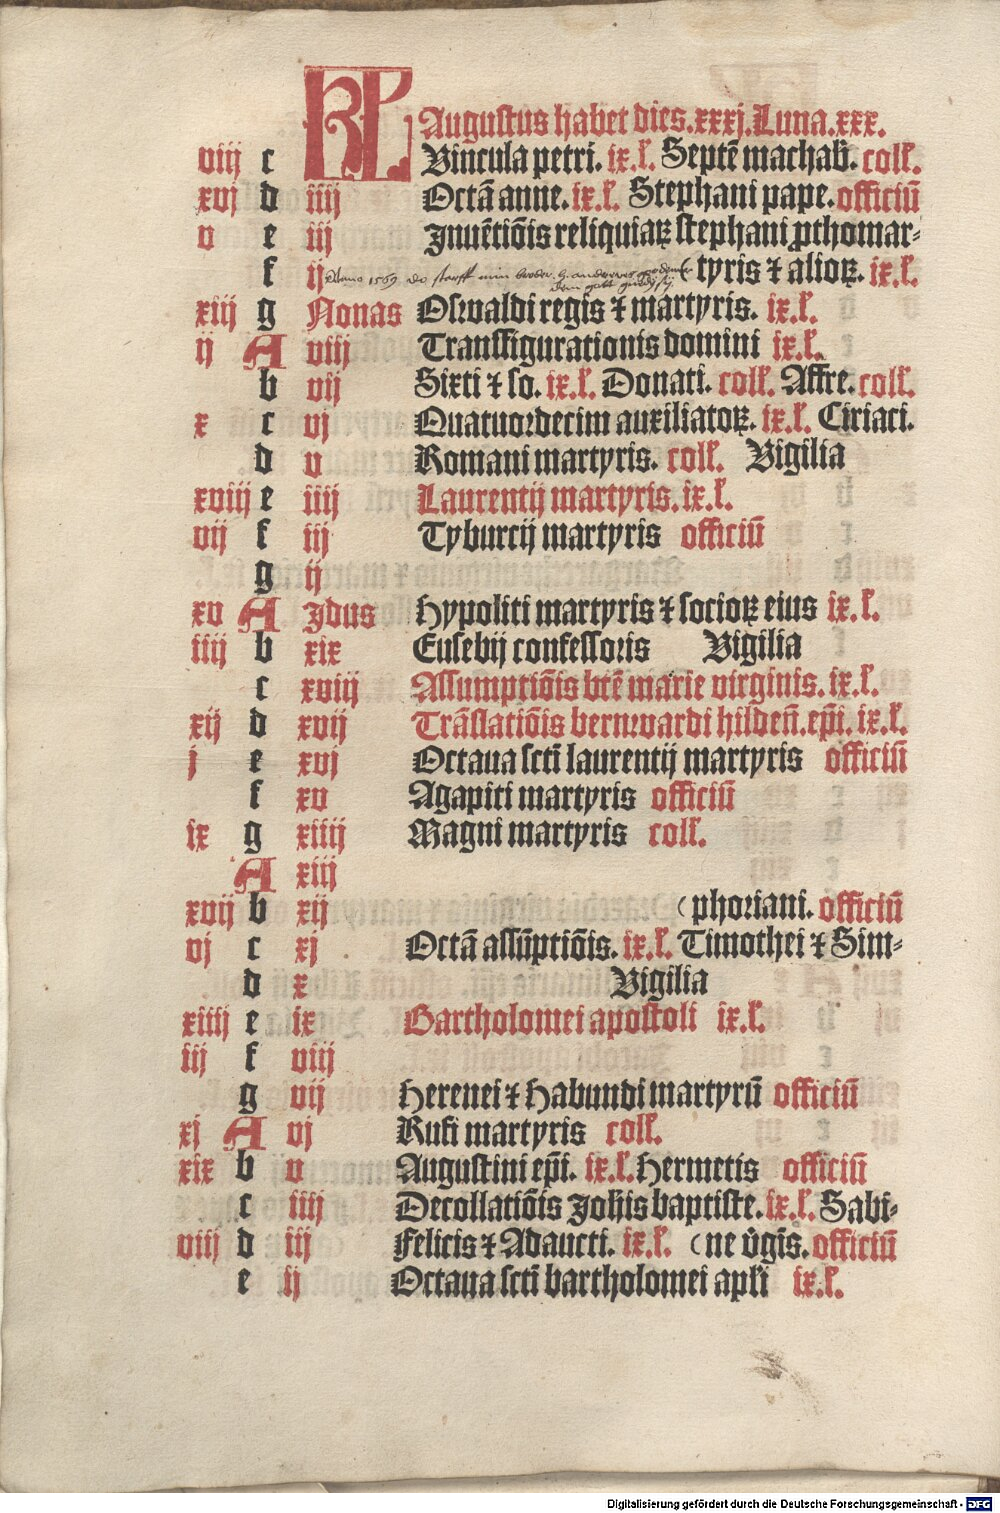 KL Augustus habet dies.xxxj.Luna.xxx.
viij c Vincula petri. ix.l̕. Septē machab̄. coll̕.
xvj d iiij Octā anne.ix.l̕. Stephani pape.officiū
v e iij Inuētiōis reliquiaꝝ stephani ꝓthomar⸗
f ij Anno 1569 do starff min broder (tyris ⁊ alioꝝ. ix.l̕.
xiij g Nonas Oswaldi regis ⁊ martyris. ix.l̕.
ij A viij Transfigurationis domini ix.l̕.
b vij Sixti ⁊ so. ix.l̕. Donati. coll̕. Affre.coll̕.
x c vj Quatuordecim auxiliatoꝝ. ix.l̕. Ciriaci.
d v Romani martyris. coll̕. Vigilia
xviij e iiij Laurentij martyris.ix.l̕.
vij f iij Tyburcij martyris officiū
g ij
xv A Idus Hypoliti martyris ⁊ socioꝝ eius ix.l̕.
iiij b xix Eusebij confessoris Vigilia
c xviij Assumptiōis btē marie virginis.ix.l̕.
xij d xvij Trāslatiōis bernwardi hildeñ.ep̄i. ix.l̕.
j e xvj Octaua scti̅ laurentij martyris officiū
f xv Agapiti martyris officiū
ix g xiiij Magni martyris coll̕.
A xiij
xvij b xij (phoriani. officiū
vj c xj Octā assūptiōis. ix.l̕. Timothei ⁊ Sim⸗
d x Vigilia
xiiij e ix Bartholomei apostoli ix.l̕.
iij f viij
g vij Herenei ⁊ Habundi martyrū officiū
xj A vj Rufi martyris coll̕.
xix b v Augustini ep̄i. ix.l̕.Hermetis officiū
c iiij Decollatiōis Joh̄is baptiste.ix.l̕. Sabi⸗
viij d iij Felicis ⁊ Adaucti. ix.l̕. (ne v̓gīs.officiū
e ij Octaua scti̅ bartholomei apl̄i ix.l̕.
Digitalisierung gefördert durch die Deutsche Forschungsgemeinschaft - DFG